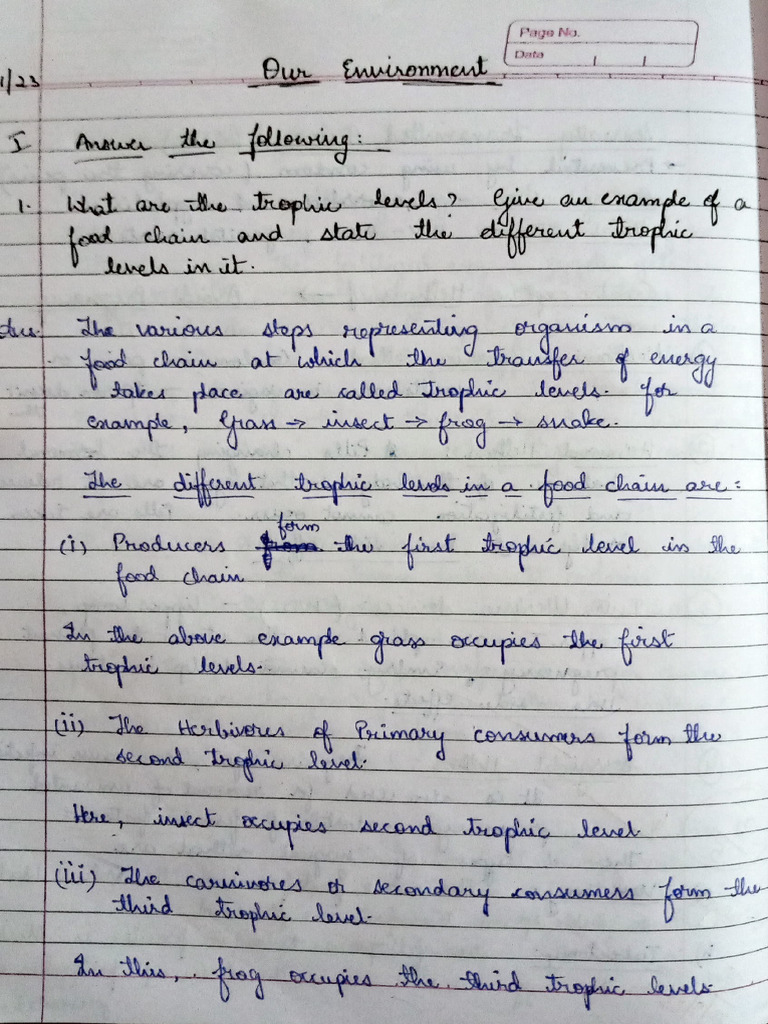 Page No.
Date
1/23
Our Environment
I Answer the following:
1. What are the trophic levels? Give an example of a
food chain and state the different trophic
levels in it.
Ans. The various steps representing organism in a
food chain at which the transfer of energy
takes place are called trophic levels. For
example, Grass → insect → frog → snake.
The different trophic levels in a food chain are:
form
(i) Producers from the first trophic level in the
food chain
In the above example grass occupies the first
trophic levels.
(ii) The Herbivores of Primary consumers form the
second trophic level.
Here, insect occupies second trophic level
(iii) The carnivores or secondary consumers form the
third trophic level.
In this, frog occupies the third trophic levels.